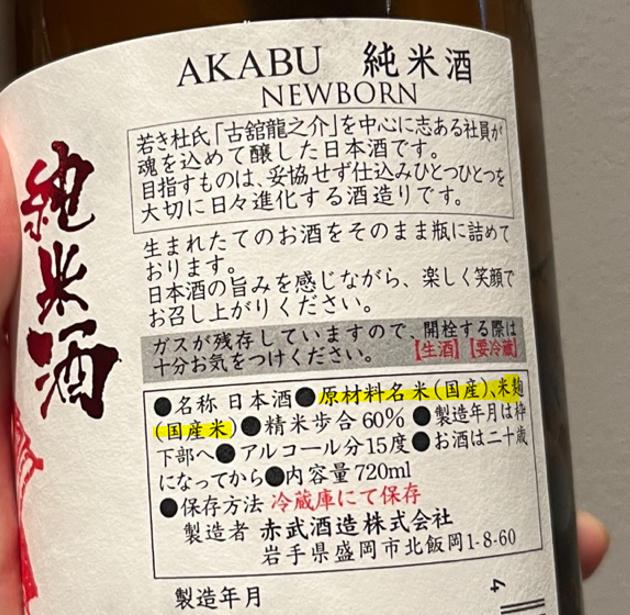 AKABU 純米酒
NEWBORN
若き杜氏「古舘龍之介」を中心に志ある社員が
魂を込めて醸した日本酒です。
目指すものは、妥協せず仕込みひとつひとつを
大切に日々進化する酒造りです。
生まれたてのお酒をそのまま瓶に詰めて
おります。
日本酒の旨みを感じながら、楽しく笑顔で
お召し上がりください。
ガスが残存していますので、開栓する際は
十分お気をつけください。【生酒】【要冷蔵】
●名称 日本酒●原材料名 米(国産)、米麹
(国産米)●精米歩合60%●製造年月は枠
下部へ●アルコール分15度●お酒は二十歳
になってから●内容量720ml
●保存方法 冷蔵庫にて保存
製造者 赤武酒造株式会社
岩手県盛岡市北飯岡1-8-60
製造年月
4
純米酒